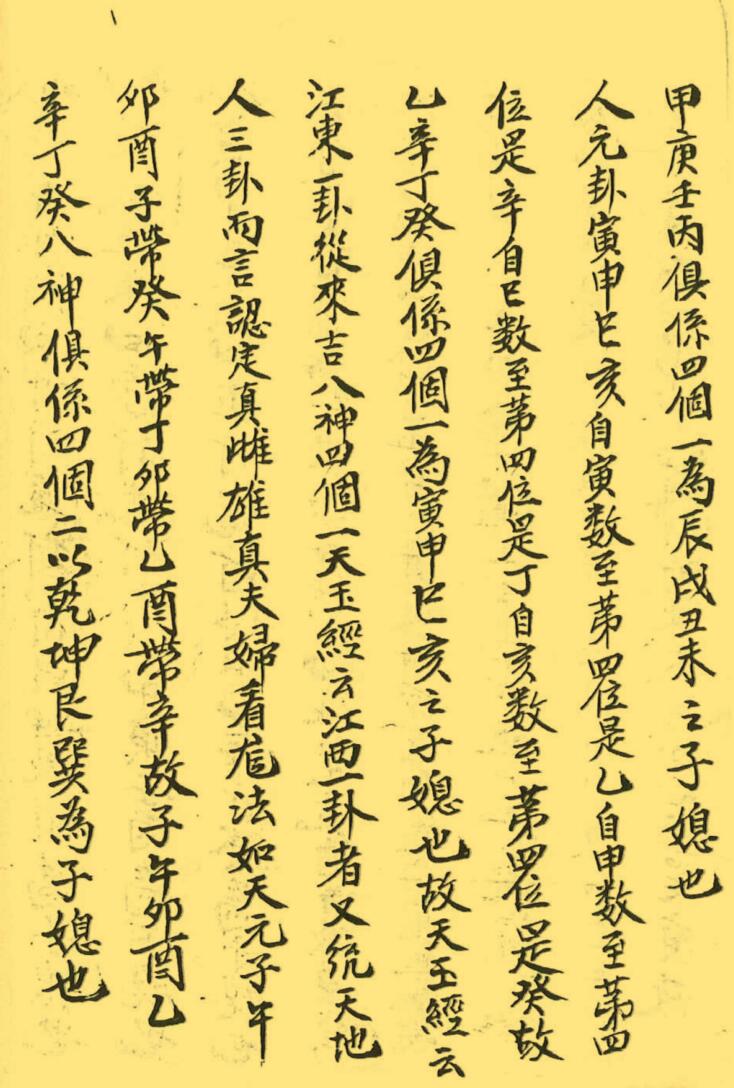 甲庚壬丙俱係四個一為辰戌丑未之子媳也
人元卦寅申巳亥自寅数至苐四位是乙自申数至苐四
位是辛自巳数至苐四位是丁自亥数至苐四位是癸故
乙辛丁癸俱係四個一為寅申巳亥之子媳也故天玉經云
江東一卦從來吉八神四個一天玉經云江西一卦者又統天地
人三卦而言認定真雌雄真夫婦看龙法如天元子午
卯酉子帶癸午帶丁卯帶乙酉帶辛故子午卯酉乙
辛丁癸八神俱係四個二以乾坤艮巽為子媳也